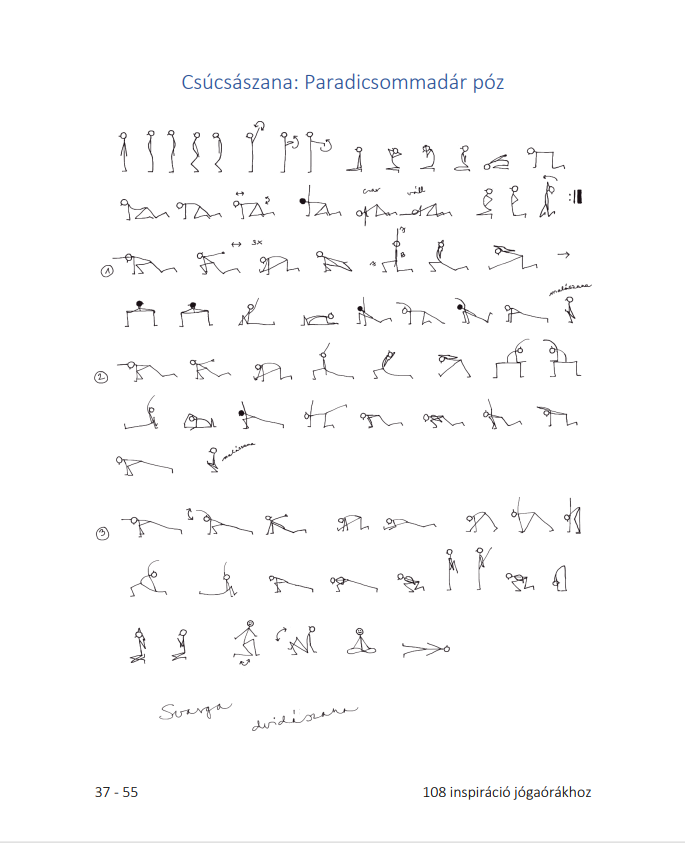 Csúcsászana: Paradicsommadár póz
váll
:
3x
①
malászana
②
malászana
③
Svarga
dvidászana
37 - 55
108 inspiráció jógaórákhoz